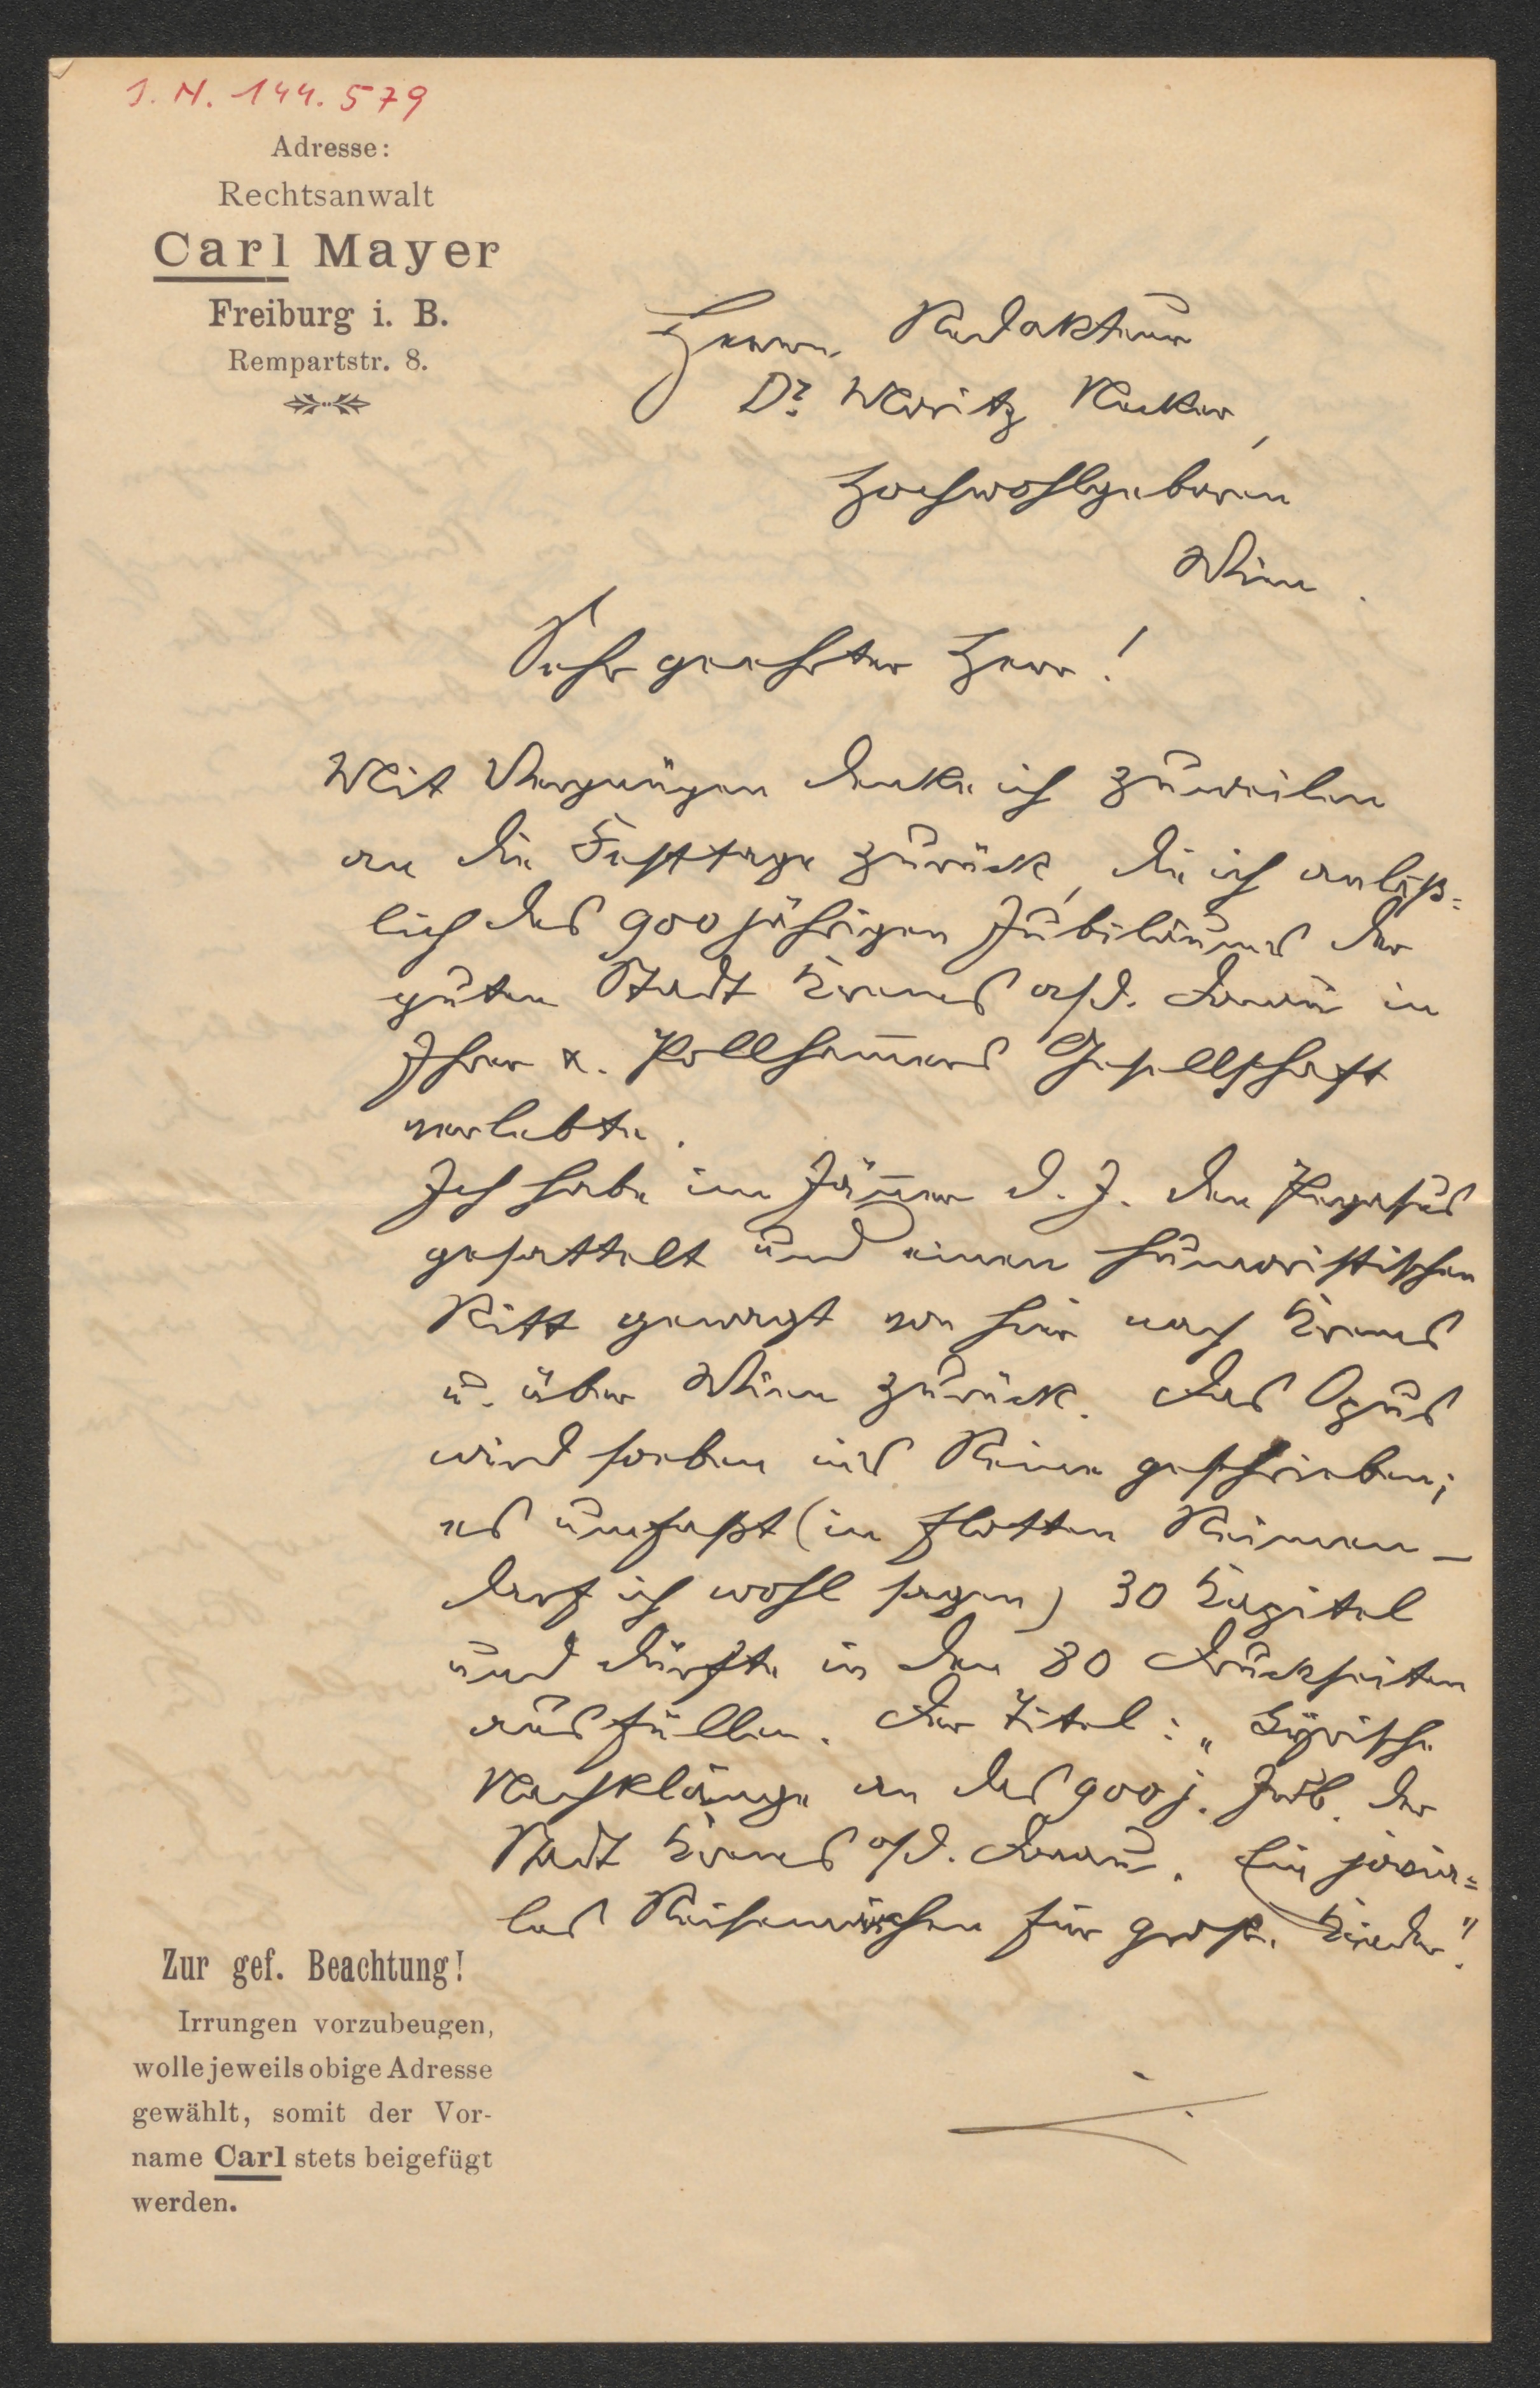 I. N. 144.579
Adresse:
Rechtsanwalt
Carl Mayer
Freiburg i. B.
Rempartstr. 8.
Herrn Redakteur
Dr. Moritz Necker,
Hochwohlgeboren
Wien.
Sehr geehrter Herr!
Mit Vergnügen denke ich zuweilen
an die Festtage zurück, die ich anläß=
lich des 900 jährigen Jubiläums der
guten Stadt Krems a/d. Donau in
Ihrer u. Pollhammers Gesellschaft
verlebte.
Ich habe im Jänner d. J. den Pegasus
gesattelt und einen humoristischen
Ritt gewagt von hier nach Krems
u. über Wien zurück. Das Opus
wird soeben ins Reine geschrieben;
es umfaßt (in flotten Reimen –
darf ich wohl sagen) 30 Kapitel
und dürfte in den 80 Druckseiten
ausfüllen. Der Titel: „Lyrische
Nachklänge an das 900 j. Jub. der
Stadt Krems a/d. Donau. Ein jovia=
les Reisemärchen für große Kinder."
Zur gef. Beachtung!
Irrungen vorzubeugen,
wolle jeweils obige Adresse
gewählt, somit der Vor-
name Carl stets beigefügt
werden.